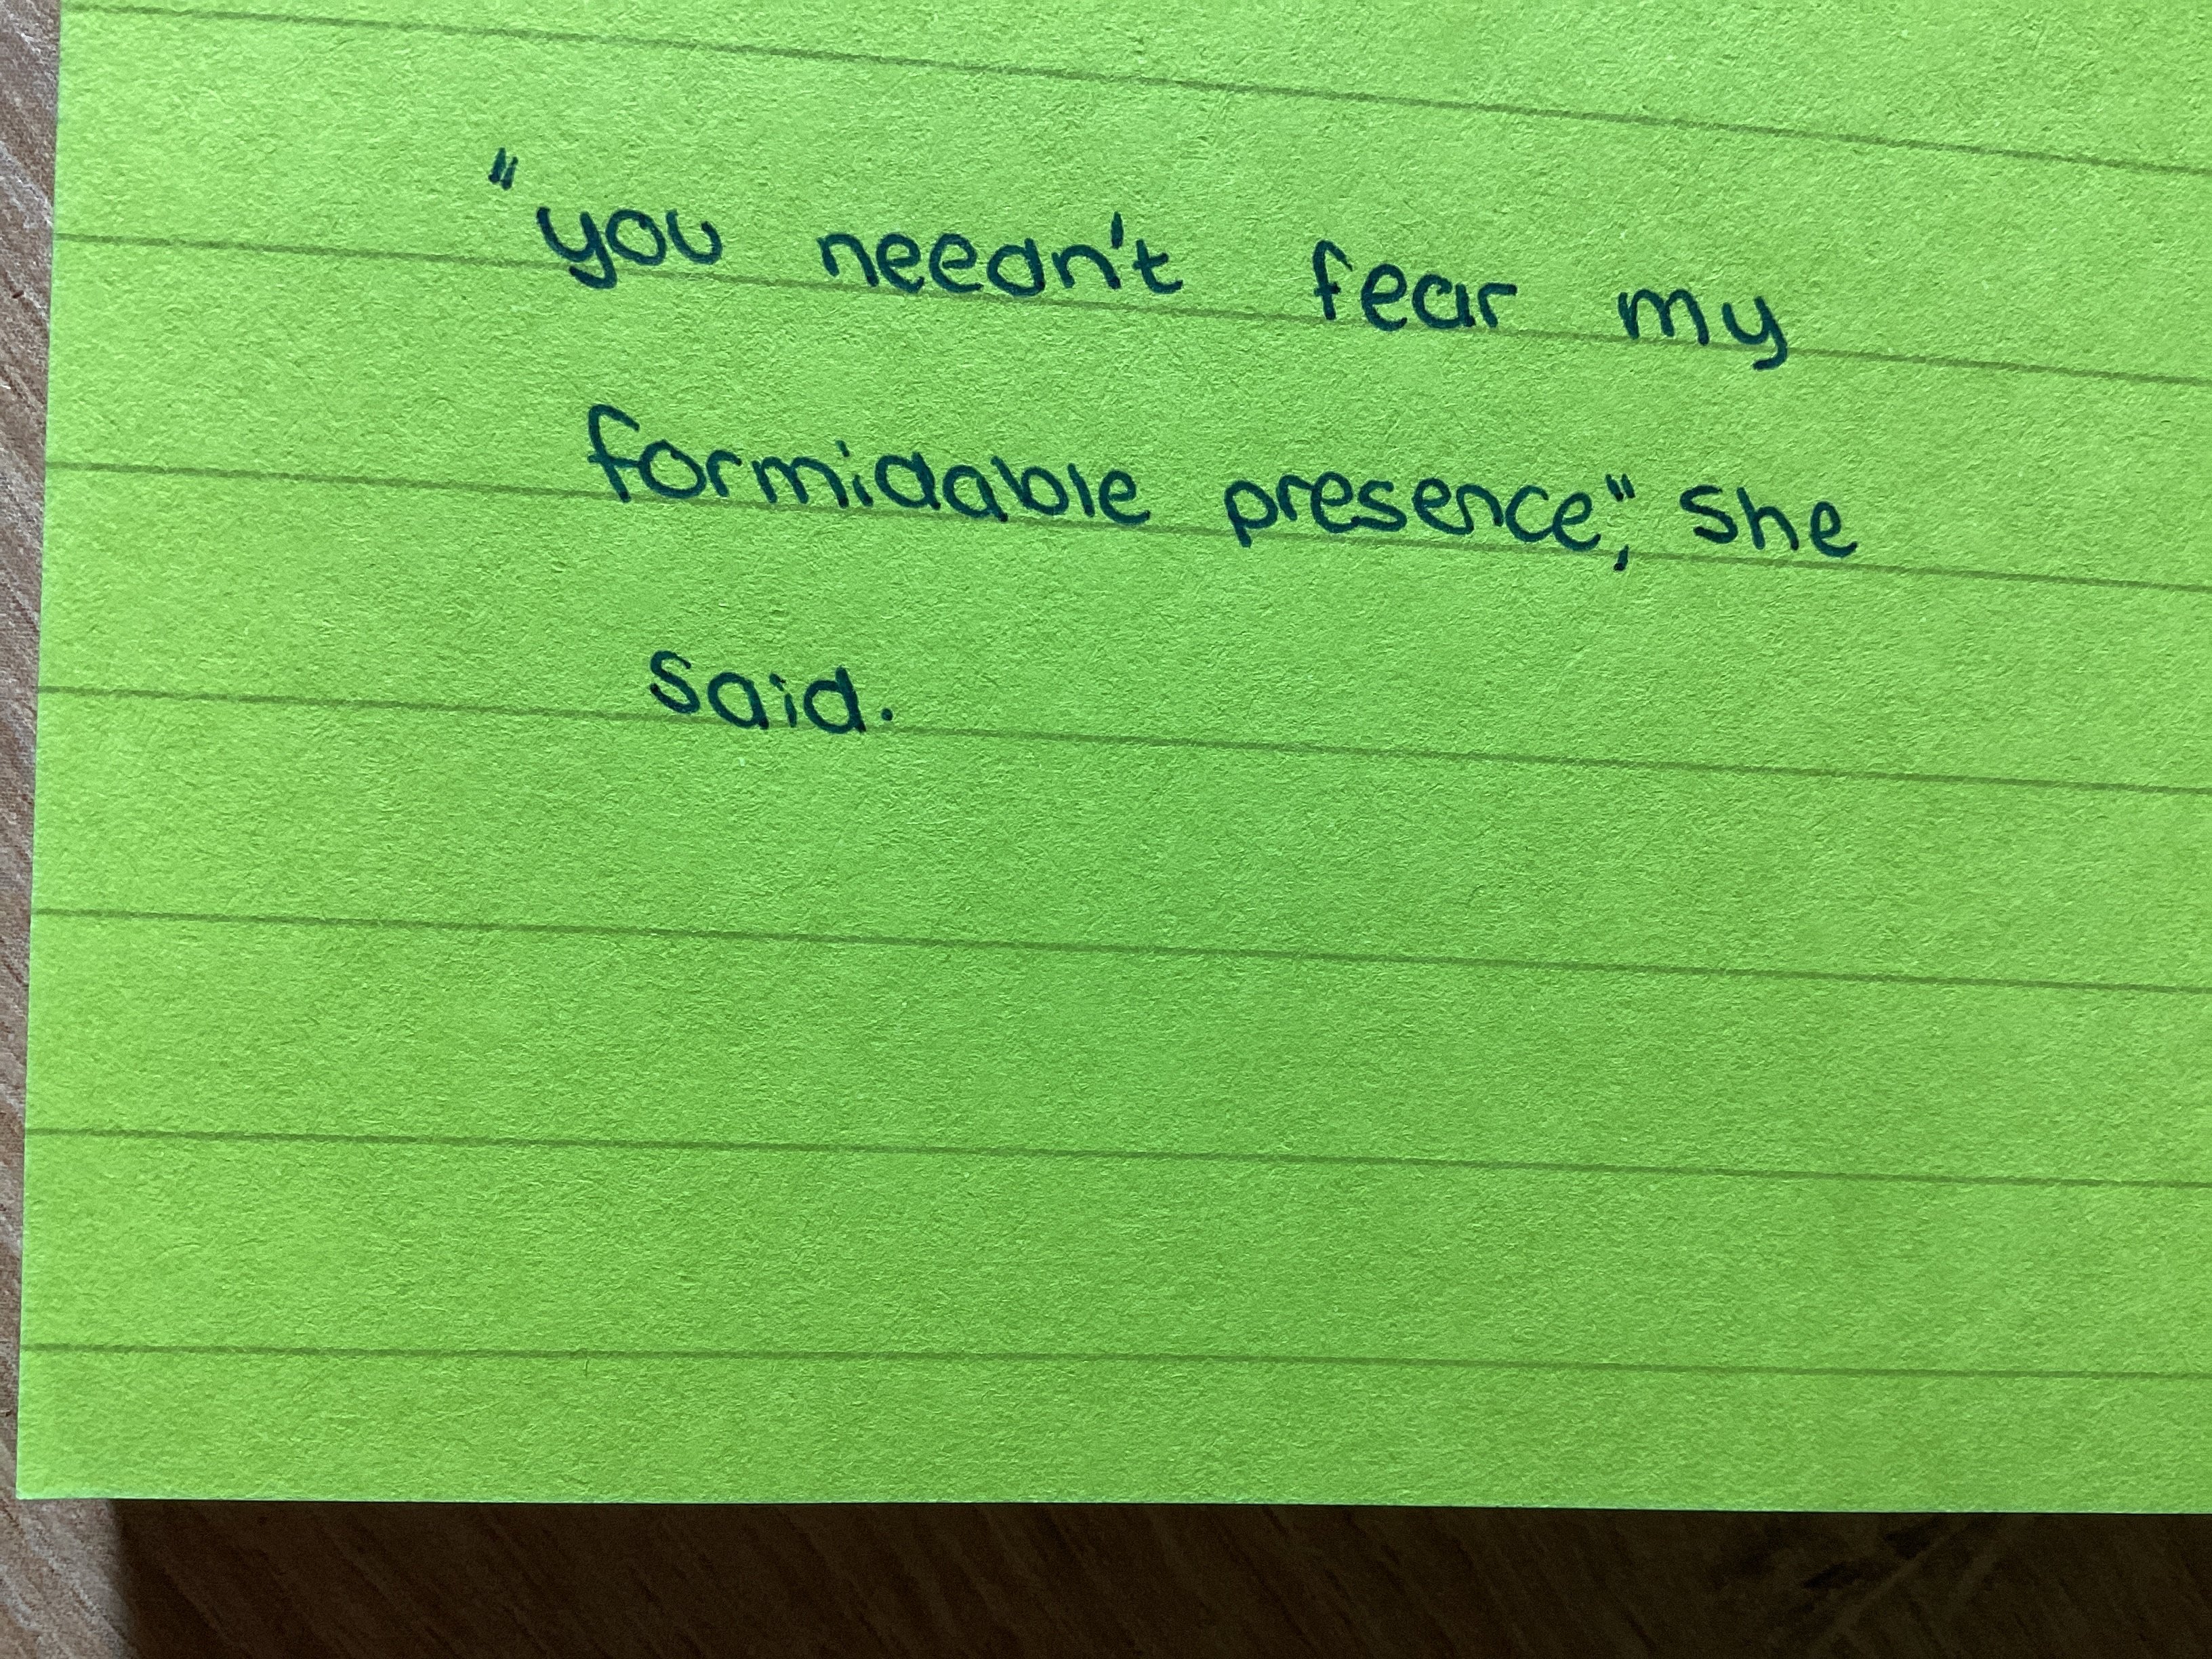 "you needn't fear my
formidable presence," she
said.